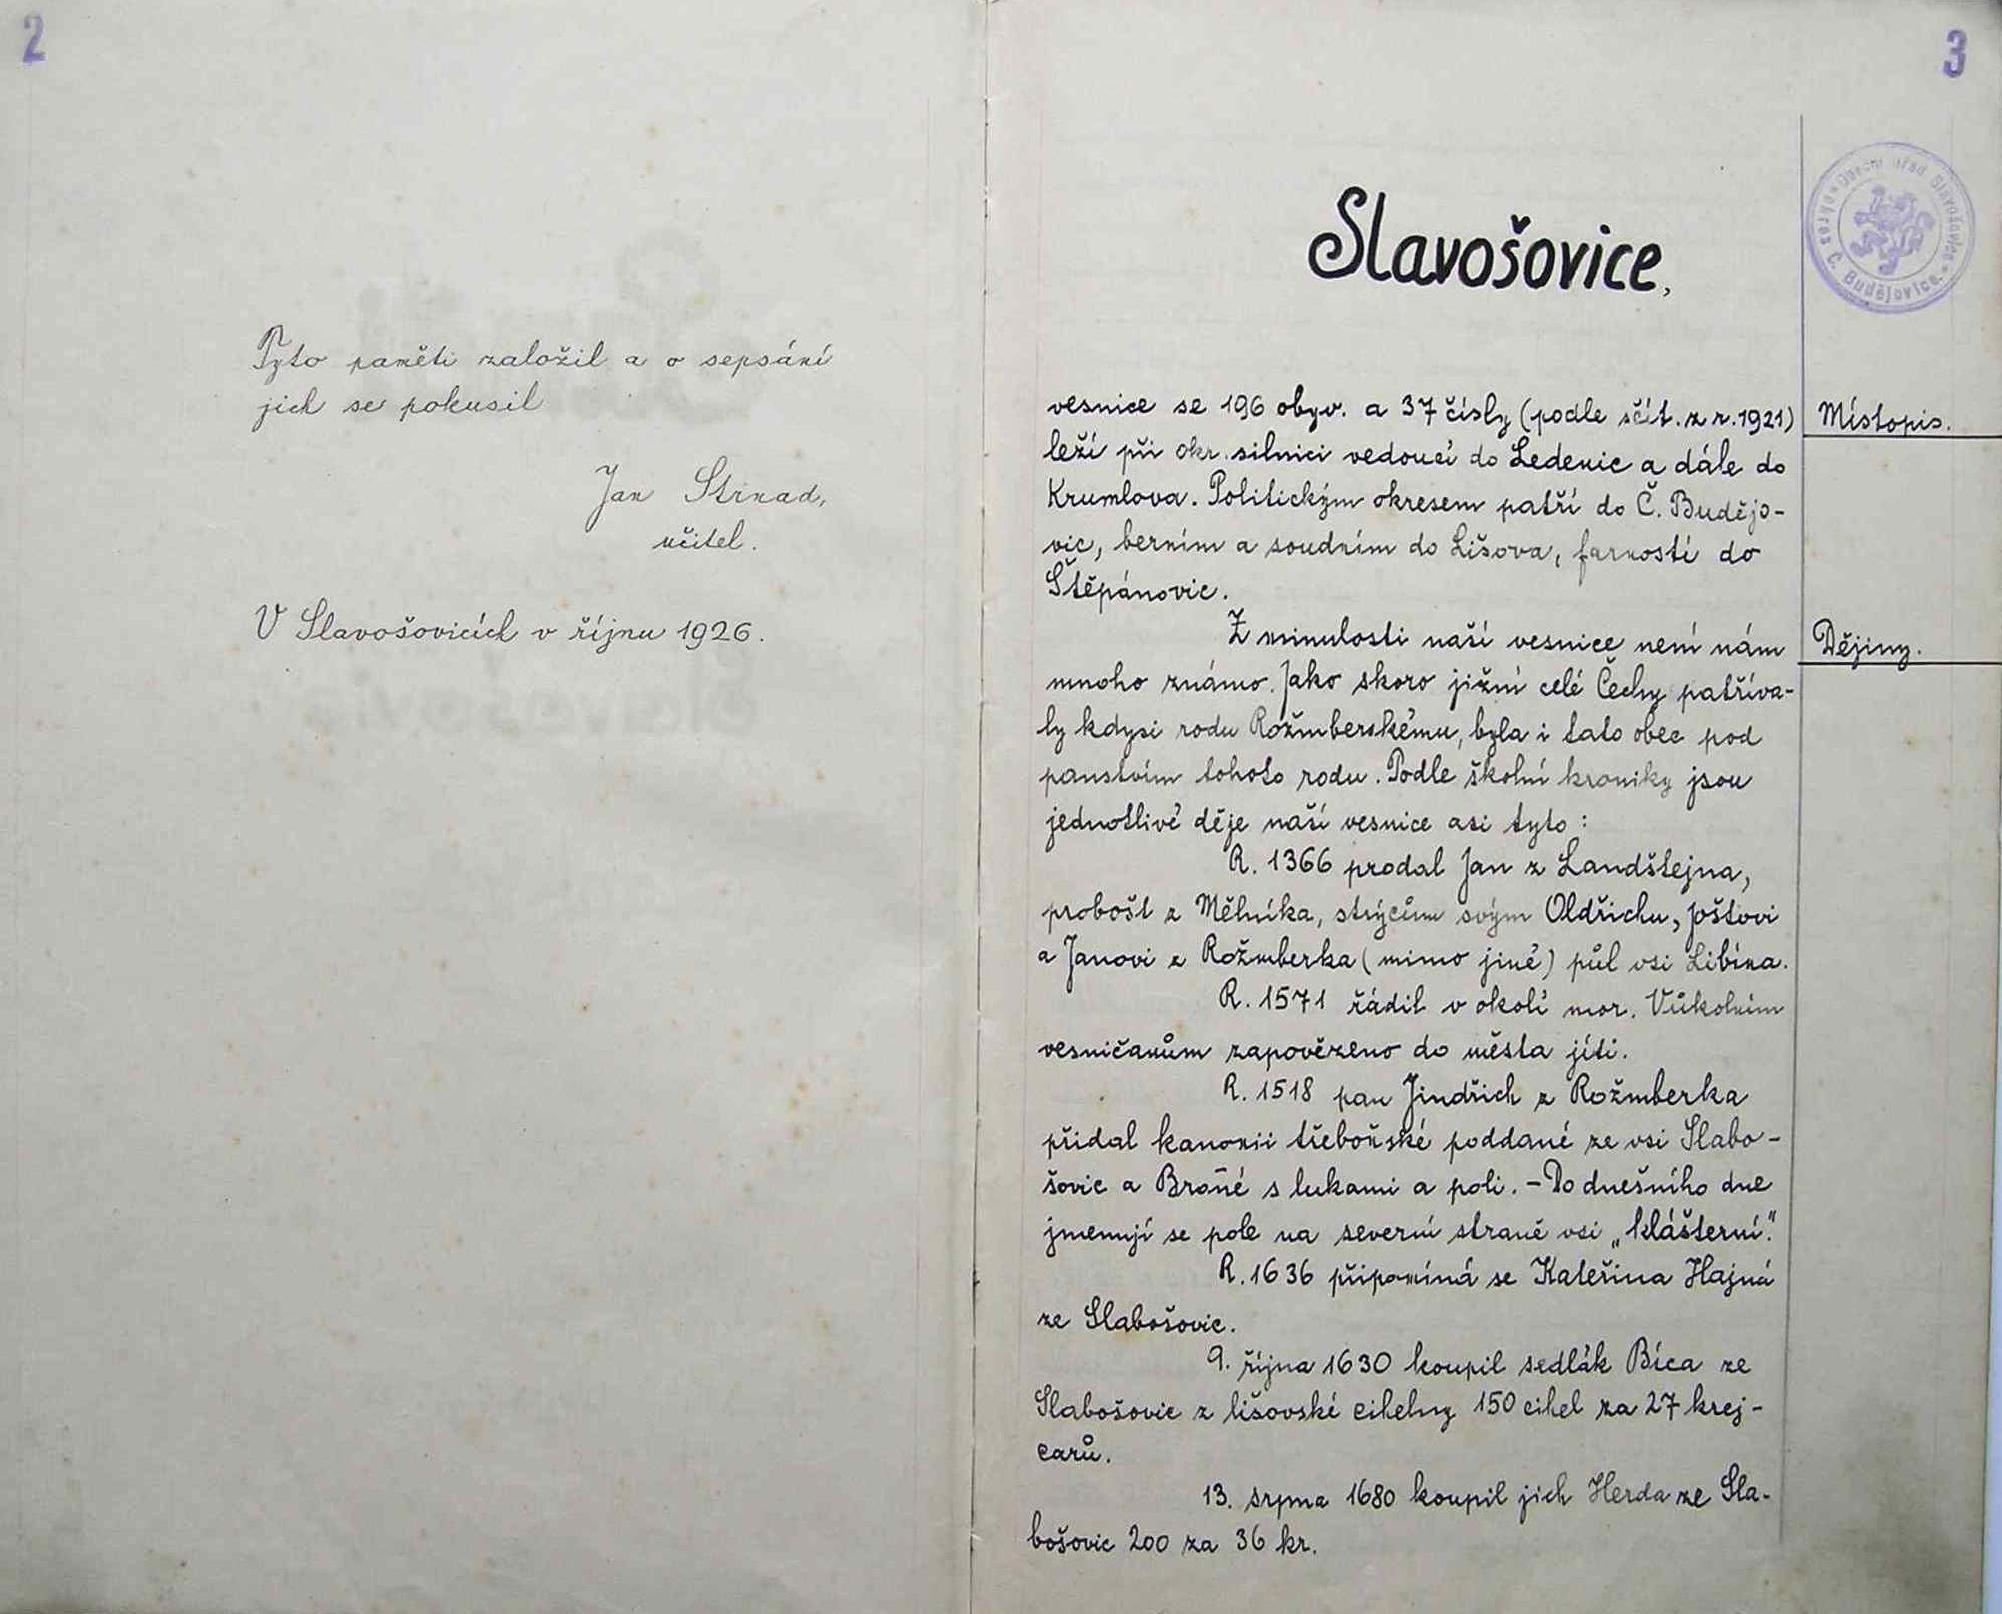 2
Tyto paměti založil a o sepsání
jich se pokusil
Jan Strnad,
učitel.
V Slavošovicích v říjnu 1926.
3
Obecní úřad Slavošovice
okres Č. Budějovice.
Slavošovice,
vesnice se 196 obyv. a 37 čísly (podle sčít. z r. 1921)
Místopis.
leží při okr. silnici vedoucí do Ledenic a dále do
Krumlova. Politickým okresem patří do Č. Budějo-
vic, berním a soudním do Lišova, farností do
Štěpánovic.
Z minulosti naší vesnice není nám
Dějiny.
mnoho známo. Jako skoro jižní celé Čechy patříva-
ly kdysi rodu Rožmberskému, byla i tato obec pod
panstvím tohoto rodu. Podle školní kroniky jsou
jednotlivé děje naší vesnice asi tyto:
R. 1366 prodal Jan z Landštejna,
probošt z Mělníka, strýcům svým Oldřichu, Joštovi
a Janovi z Rožmberka (mimo jiné) půl vsi Libína.
R. 1571 řádil v okolí mor. Vůkolním
vesničanům zapovězeno do města jíti.
R. 1518 pan Jindřich z Rožmberka
přidal kanonii třeboňské poddané ze vsi Slabo-
šovic a Broňé s lukami a poli. – Do dnešního dne
jmenují se pole na severní straně vsi „klášterní."
R. 1636 připomíná se Kateřina Hajná
ze Slabošovic.
9. října 1630 koupil sedlák Bíca ze
Slabošovic z lišovské cihelny 150 cihel za 27 krej-
carů.
13. srpna 1680 koupil jich Herda ze Sla-
bošovic 200 za 36 kr.